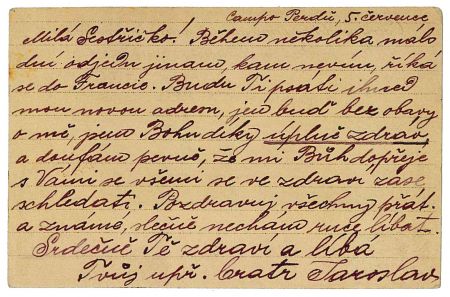 Campo Perdu, 5. července
Milá Sestřičko! Během několika málo
dní odjedu jinam, kam nevím, říká
se do Francie. Budu Ti psáti ihned
mou novou adresu, jen buď bez obavy
o mě, jsem Bohu díky úplně zdráv,
a doufám pevně, že mi Bůh dopřeje
s Vámi se všemi se ve zdraví zase
schledat. Pozdravuj všechny přát.
a známé, slečně nechám ruce líbat.
Srdečně Tě zdraví a líbá
Tvůj upř. bratr Jaroslav